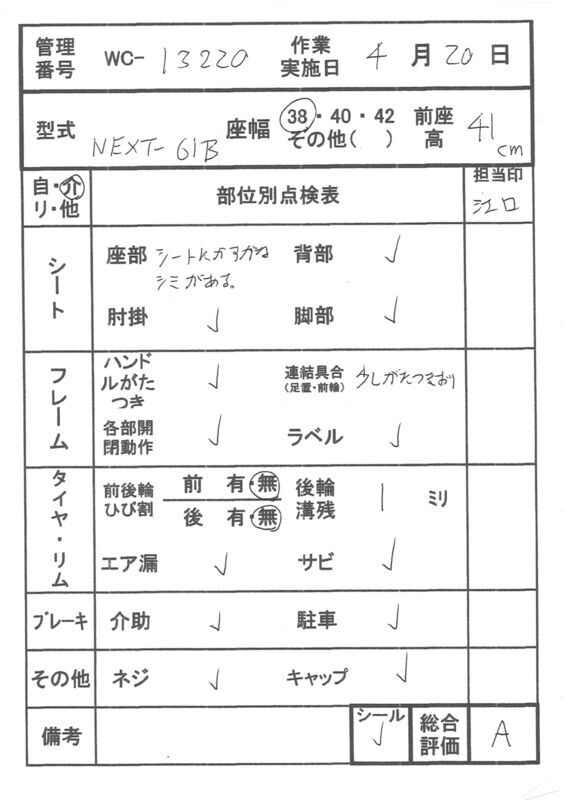 管理番号 WC-13220 作業実施日 4月20日
型式 NEXT-61B 座幅 38・40・42 その他( ) 前座高 41cm
自・介 リ・他 部位別点検表 担当印 江口
シート 座部 シートにかすかな 背部 ✓
シミがある。
肘掛 ✓ 脚部 ✓
フレーム ハンドルがたつき ✓ 連結具合(足置・前輪) 少しがたつきあり
各部開閉動作 ✓ ラベル ✓
タイヤ・リム 前後輪ひび割 前 有・無 後輪溝残 1 ミリ
後 有・無
エア漏 ✓ サビ ✓
ブレーキ 介助 ✓ 駐車 ✓
その他 ネジ ✓ キャップ ✓
備考 シール ✓ 総合評価 A